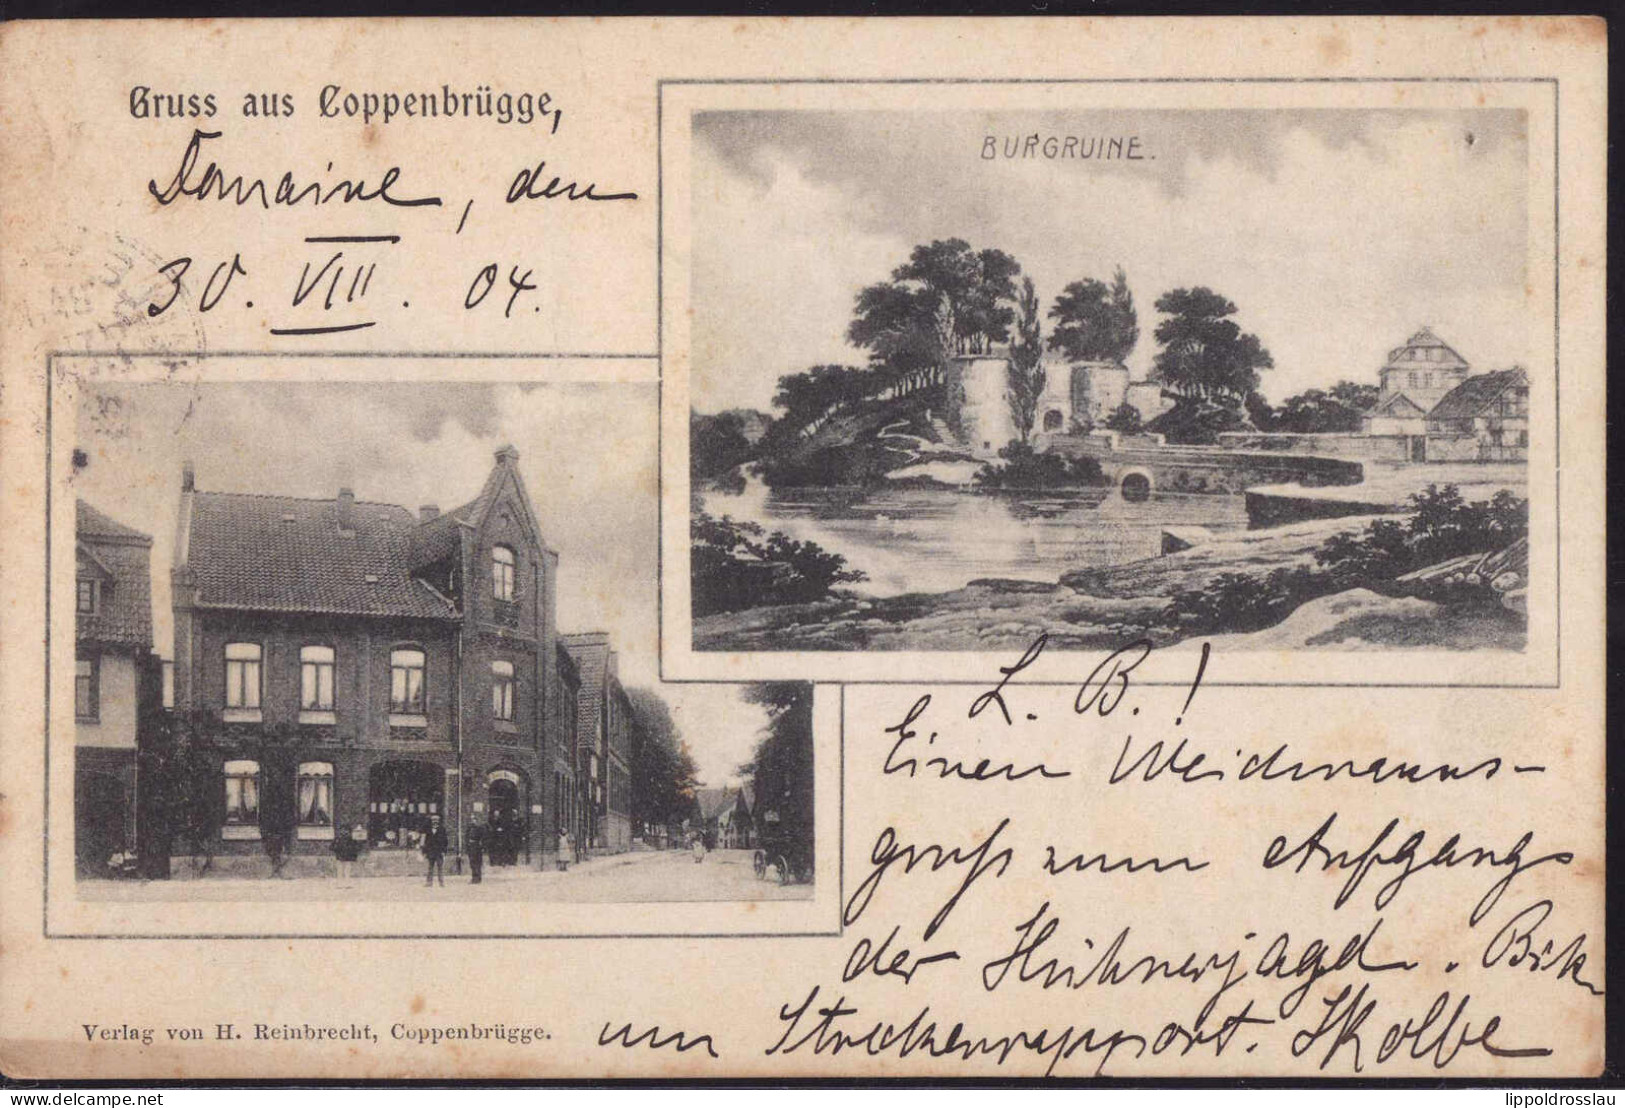 Gruss aus Coppenbrügge,
Domaine, den
30. VIII. 04.
BURGRUINE.
L. B.!
Einen Weidmanns-
gruß zum Aufgang
der Hühnerjagd.
um Streckenrapport.
Kolbe
Verlag von H. Reinbrecht, Coppenbrügge.
Ansichtskarten-center.de
lippoldrosslau